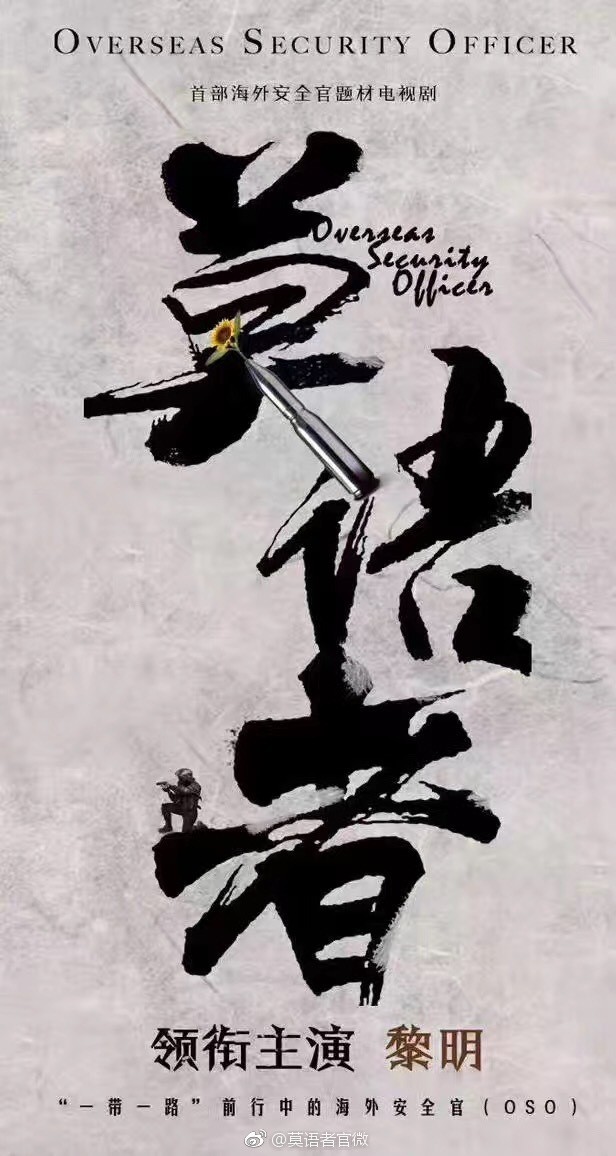 OVERSEAS SECURITY OFFICER
首部海外安全官题材电视剧
莫语者
Overseas
Security
Officer
领衔主演 黎明
“一带一路”前行中的海外安全官(OSO)
@莫语者官微